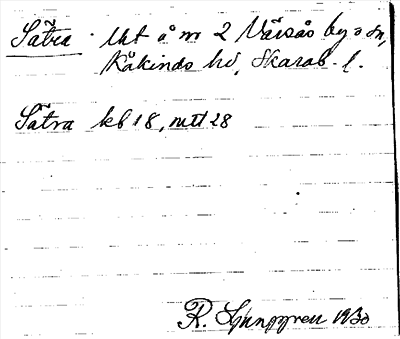 Sätra. Uht å nr 2 Värsås by o sn,
Kåkinds hd, Skarab. l.
Sätra kb 18, mtt 28
R. Ljunggren 1930